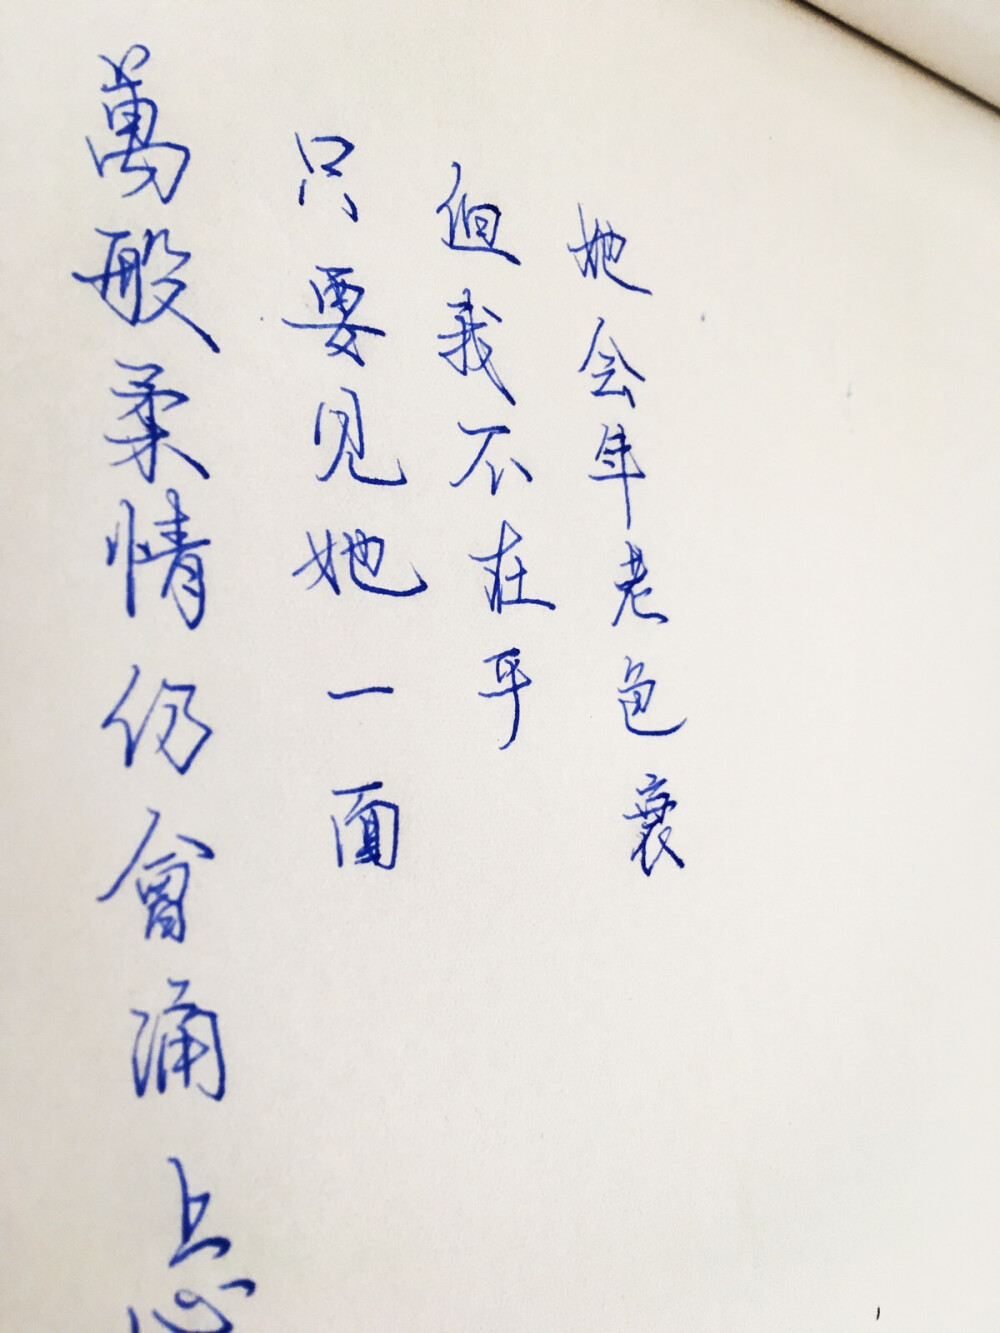 她会年老色衰
但我不在乎
只要见她一面
萬般柔情仍會涌上心